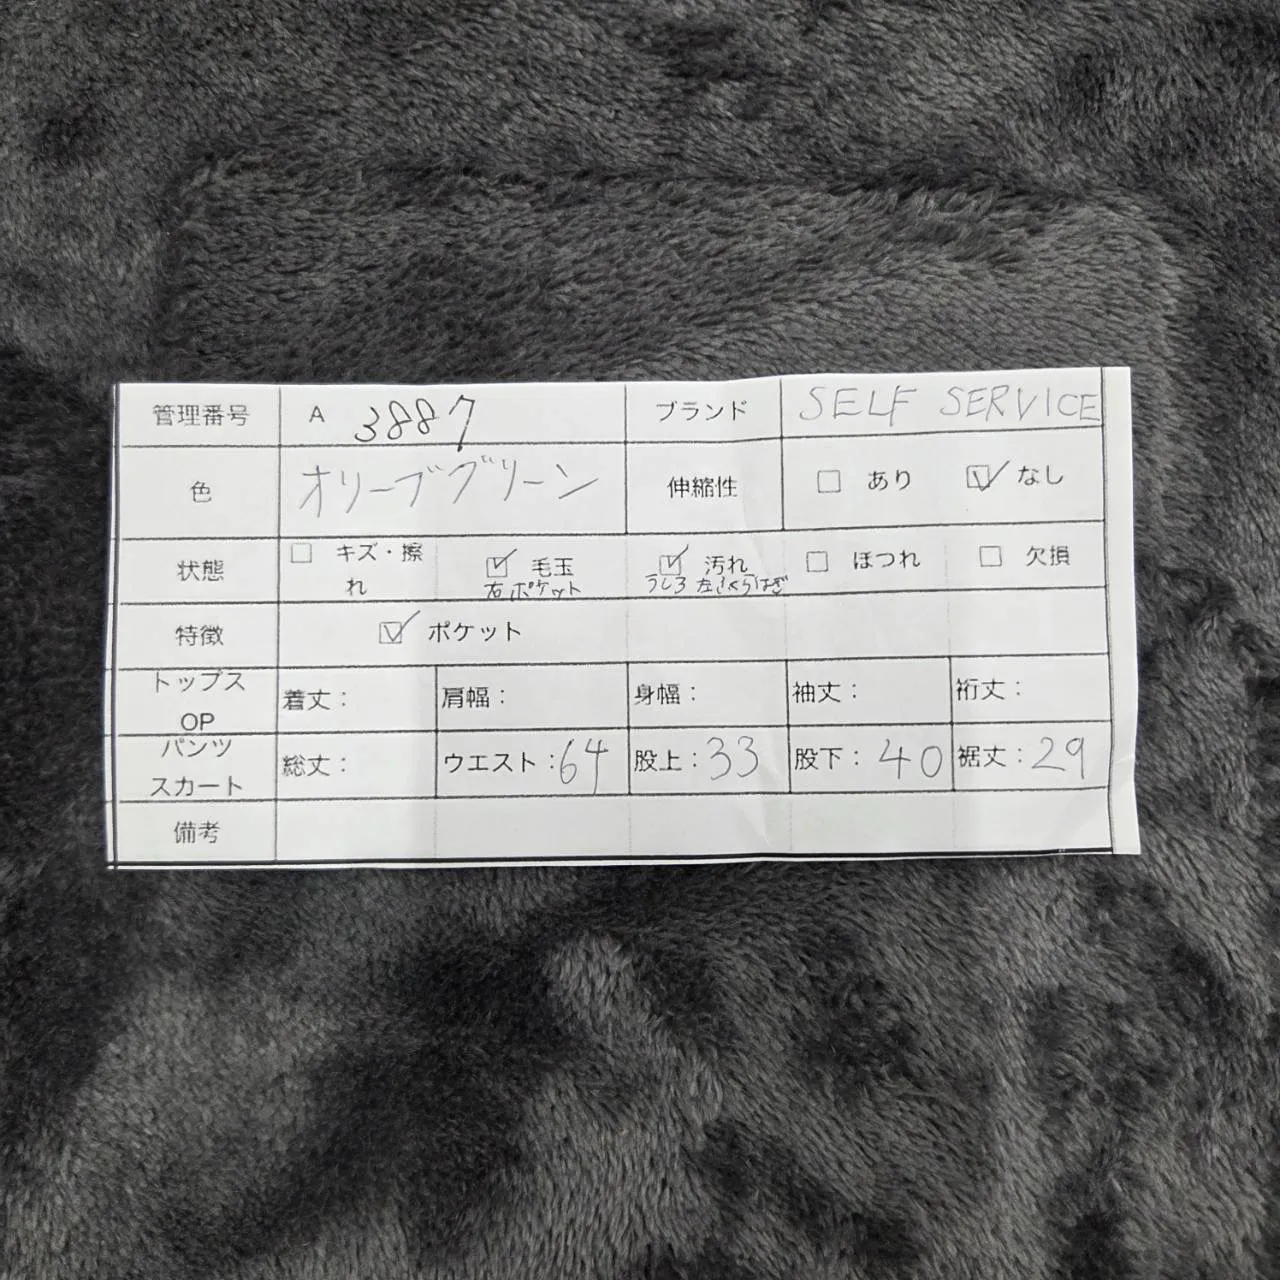 管理番号 A 3887 ブランド SELF SERVICE
色 オリーブグリーン 伸縮性 □ あり ☑ なし
状態 □ キズ・擦れ ☑ 毛玉 右ポケット ☑ 汚れ うしろ 左ふくらはぎ □ ほつれ □ 欠損
特徴 ☑ ポケット
トップス OP 着丈: 肩幅: 身幅: 袖丈: 裄丈:
パンツ スカート 総丈: ウエスト:64 股上:33 股下:40 裾丈:29
備考